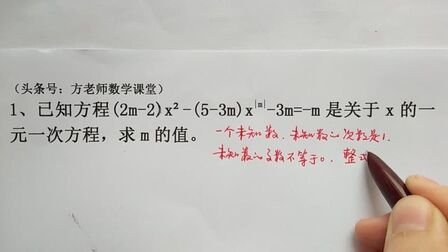 (头条号：方老师数学课堂)
1、已知方程(2m-2)x²-(5-3m)x^|m|-3m=-m 是关于 x 的一
元一次方程，求 m 的值。 一个未知数，未知数的次数是1.
未知数的系数不等于0. 整式